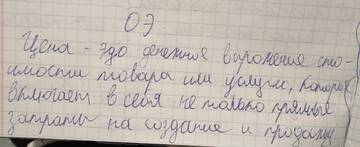 ОЭ
Цена - это денежное выражение сто-
имости товара или услуги, которое
включает в себя не только прямые
затраты на создание и продажу